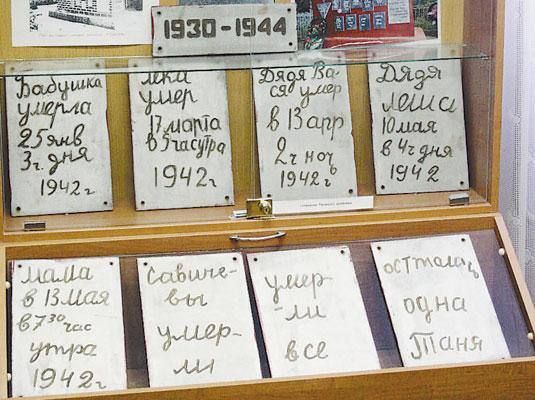 1930-1944
Бабушка
умерла
25 янв
3 ч. дня
1942 г
лека
умер
17 марта
в 5 час утра
1942 г
Дядя Ва-
ся умер
в 13 апр
2 ч ноч
1942 г
Дядя
леша
10 мая
в 4 ч дня
1942
мама
в 13 мая
в 7 30 час
утра
1942 г
савиче-
вы
умер-
ли
умер-
-ли
все
осталась
одна
Таня